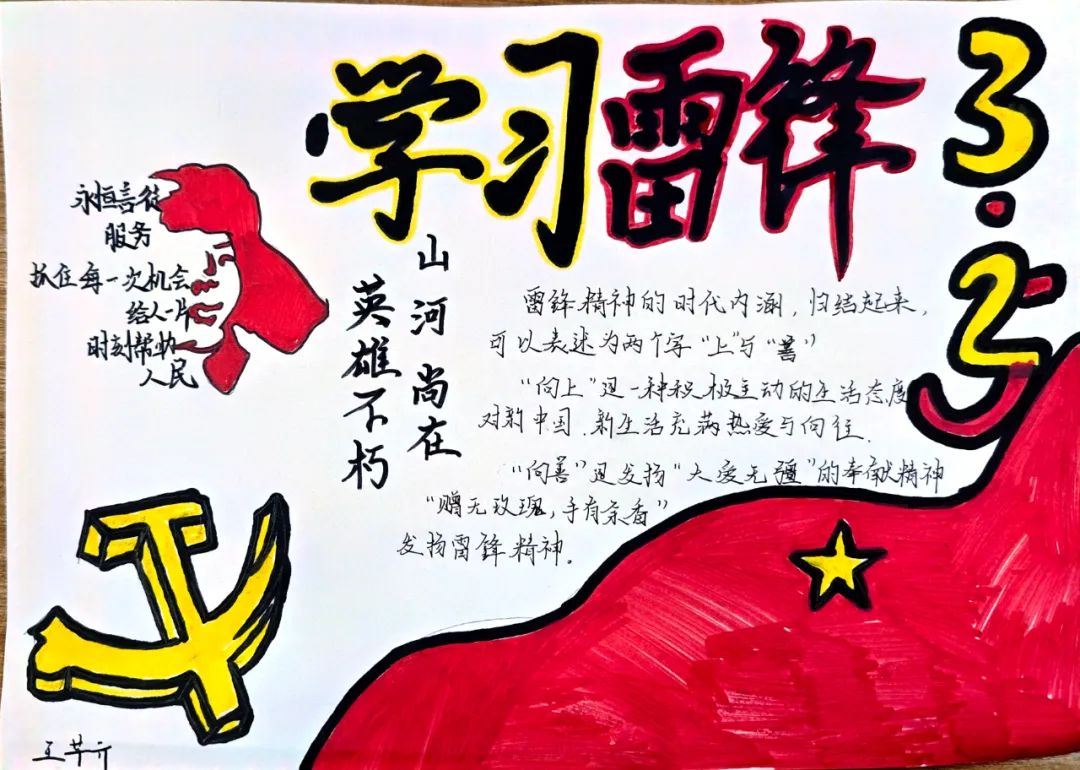 学习雷锋
3·5
永恒善徒
服务
抓住每一次机会
给人一片
时刻帮助
人民
山河尚在
英雄不朽
雷锋精神的时代内涵,归结起来,
可以表述为两个字“上”与“善”
“向上”迅一种积极主动的生活态度
对新中国.新生活充满热爱与向往.
“向善”迅发扬“大爱无疆”的奉献精神
“赠无玫瑰,手有余香”
发扬雷锋精神。